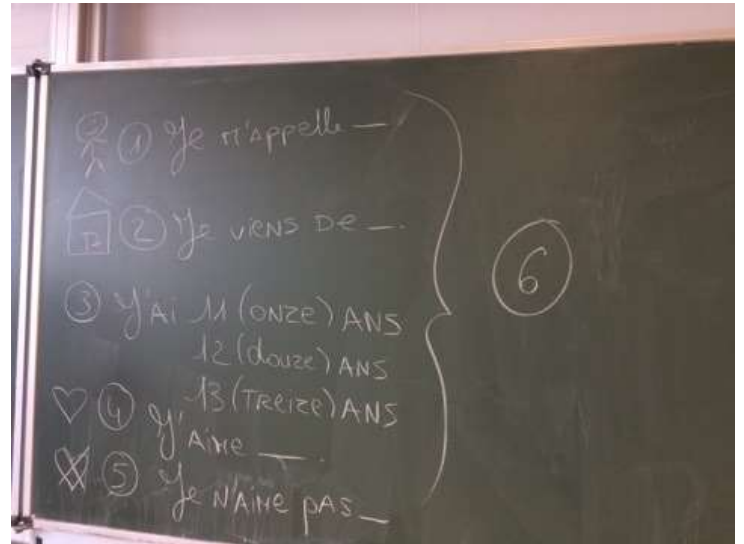 ① Je m'appelle __
② Je viens de __.
③ J'ai 11 (onze) ANS
12 (douze) ANS
13 (TReize) ANS
④ J'Aime __.
⑤ Je N'Aime pAS __
⑥